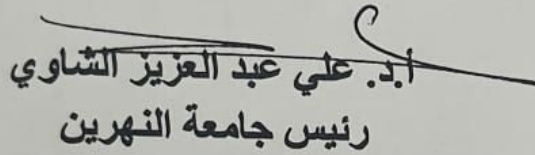 أ.د. علي عبد العزيز الشاوي
رئيس جامعة النهرين